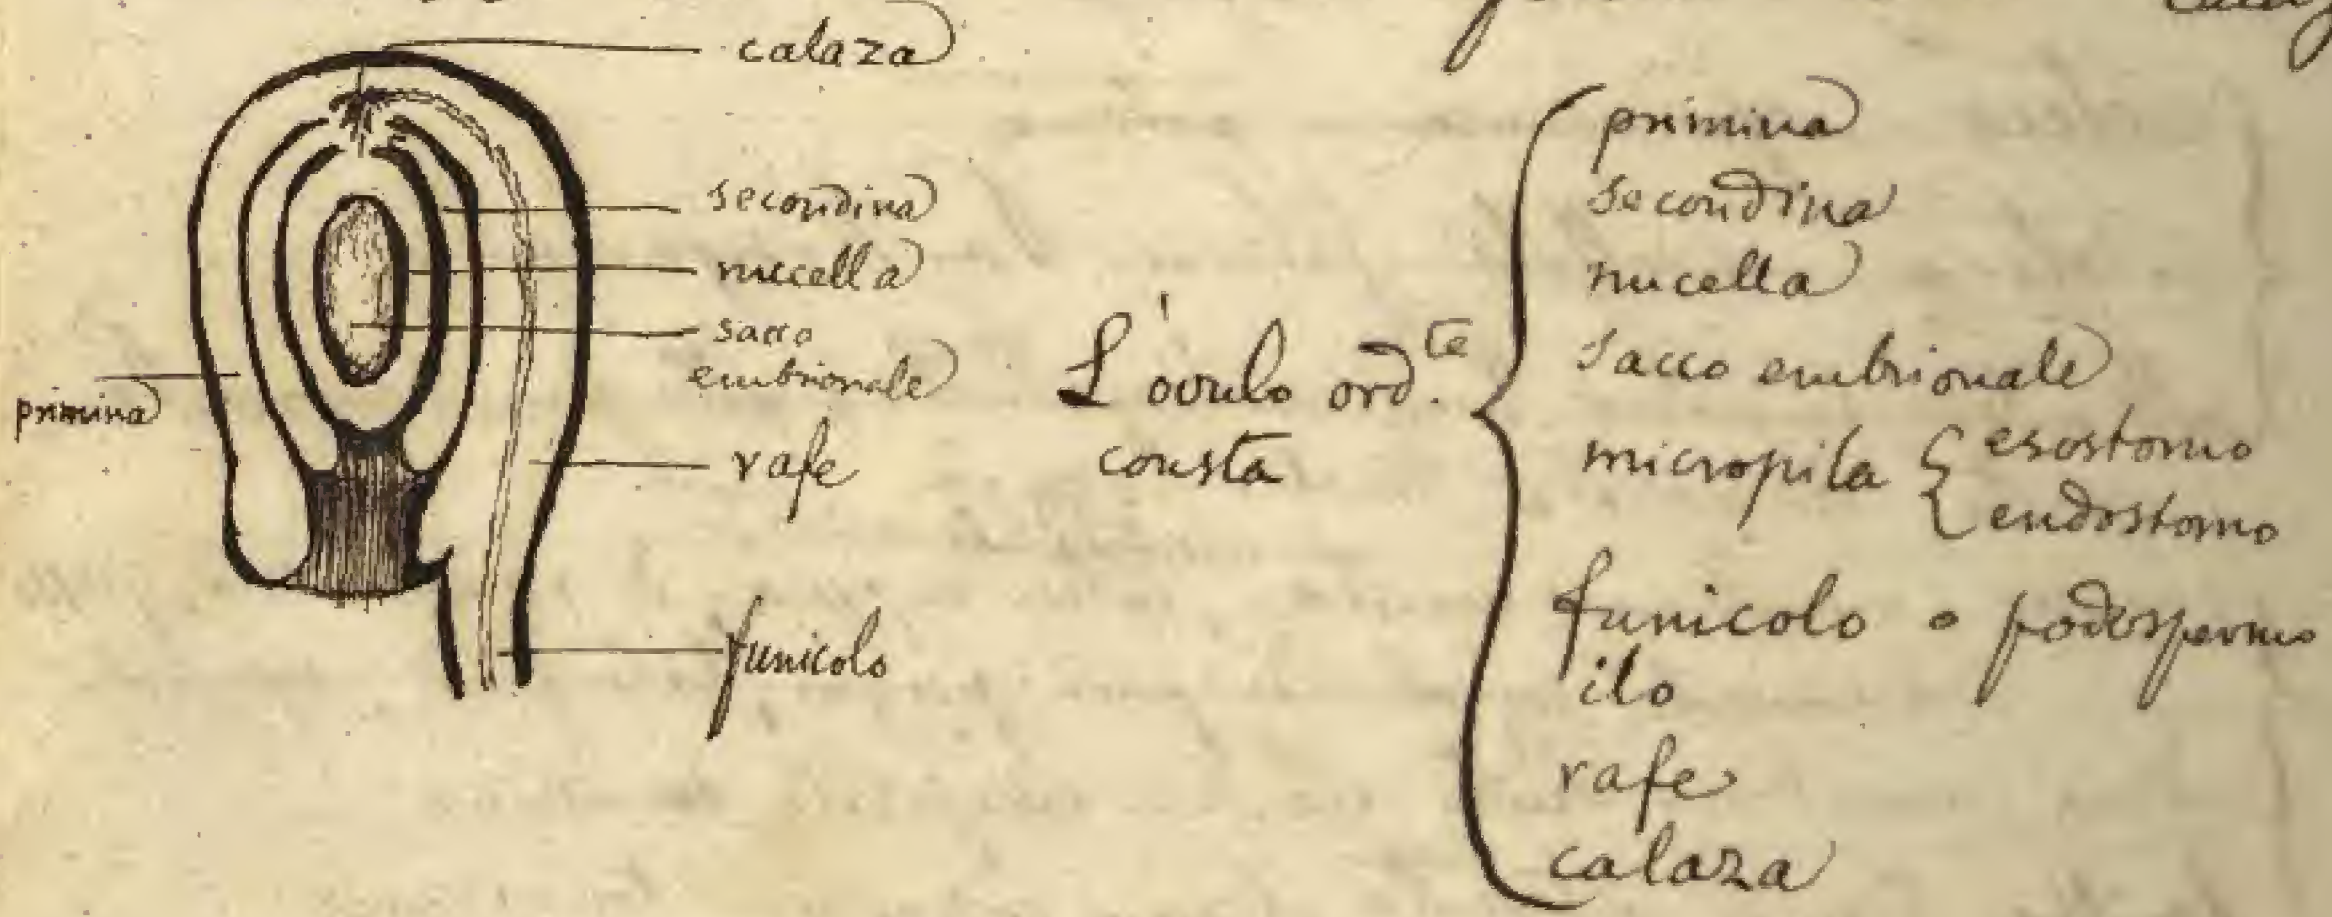 calaza
secondina
nucella
sacco
embrionale
primina
rafe
funicolo
L'ovulo ord.te
consta
primina
secondina
nucella
sacco embrionale
micropila { esostomo
endostomo
funicolo o podospermo
ilo
rafe
calaza